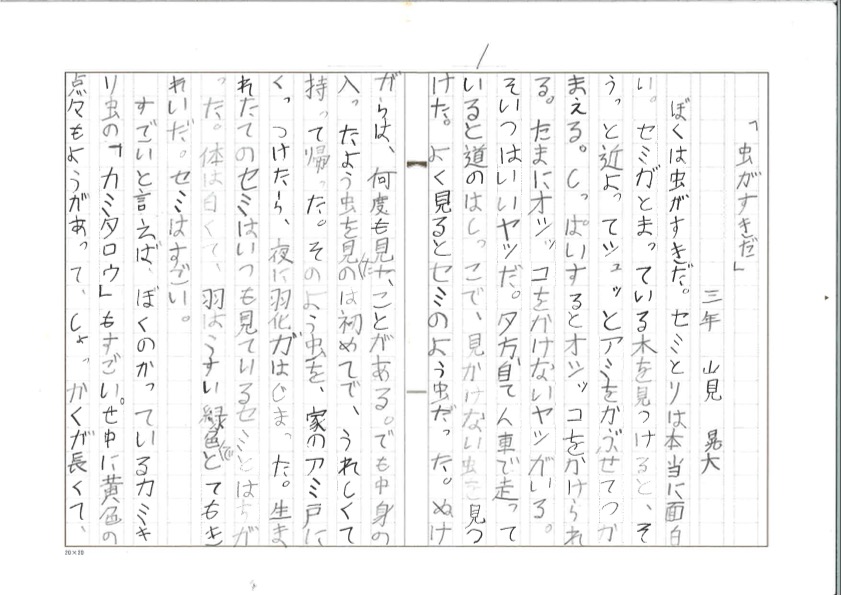 1
「虫がすきだ」
三年 山見 晃大
ぼくは虫がすきだ。セミとりは本当に面白
い。セミがとまっている木を見つけると、そ
うっと近よってシュッとアミをかぶせてつか
まえる。しっぱいするとオシッコをかけられ
る。たまにオシッコをかけないヤツがいる。
そいつはいいヤツだ。夕方自てん車で走って
いると道のはしっこで、見かけない虫を見つ
けた。よく見るとセミのよう虫だった。ぬけ
がらは、何度も見たことがある。でも中身の
入ったよう虫を見たのは初めてで、うれしくて
持って帰った。そのよう虫を、家のアミ戸に
くっつけたら、夜に羽化がはじまった。生ま
れたてのセミはいつも見ているセミとはちが
った。体は白くて、羽はうすい緑色でとてもき
れいだ。セミはすごい。
すごいと言えば、ぼくのかっているカミキ
リ虫の「カミタロウ」もすごい。せ中に黄色の
点々もようがあって、しょっかくが長くて、
20×20